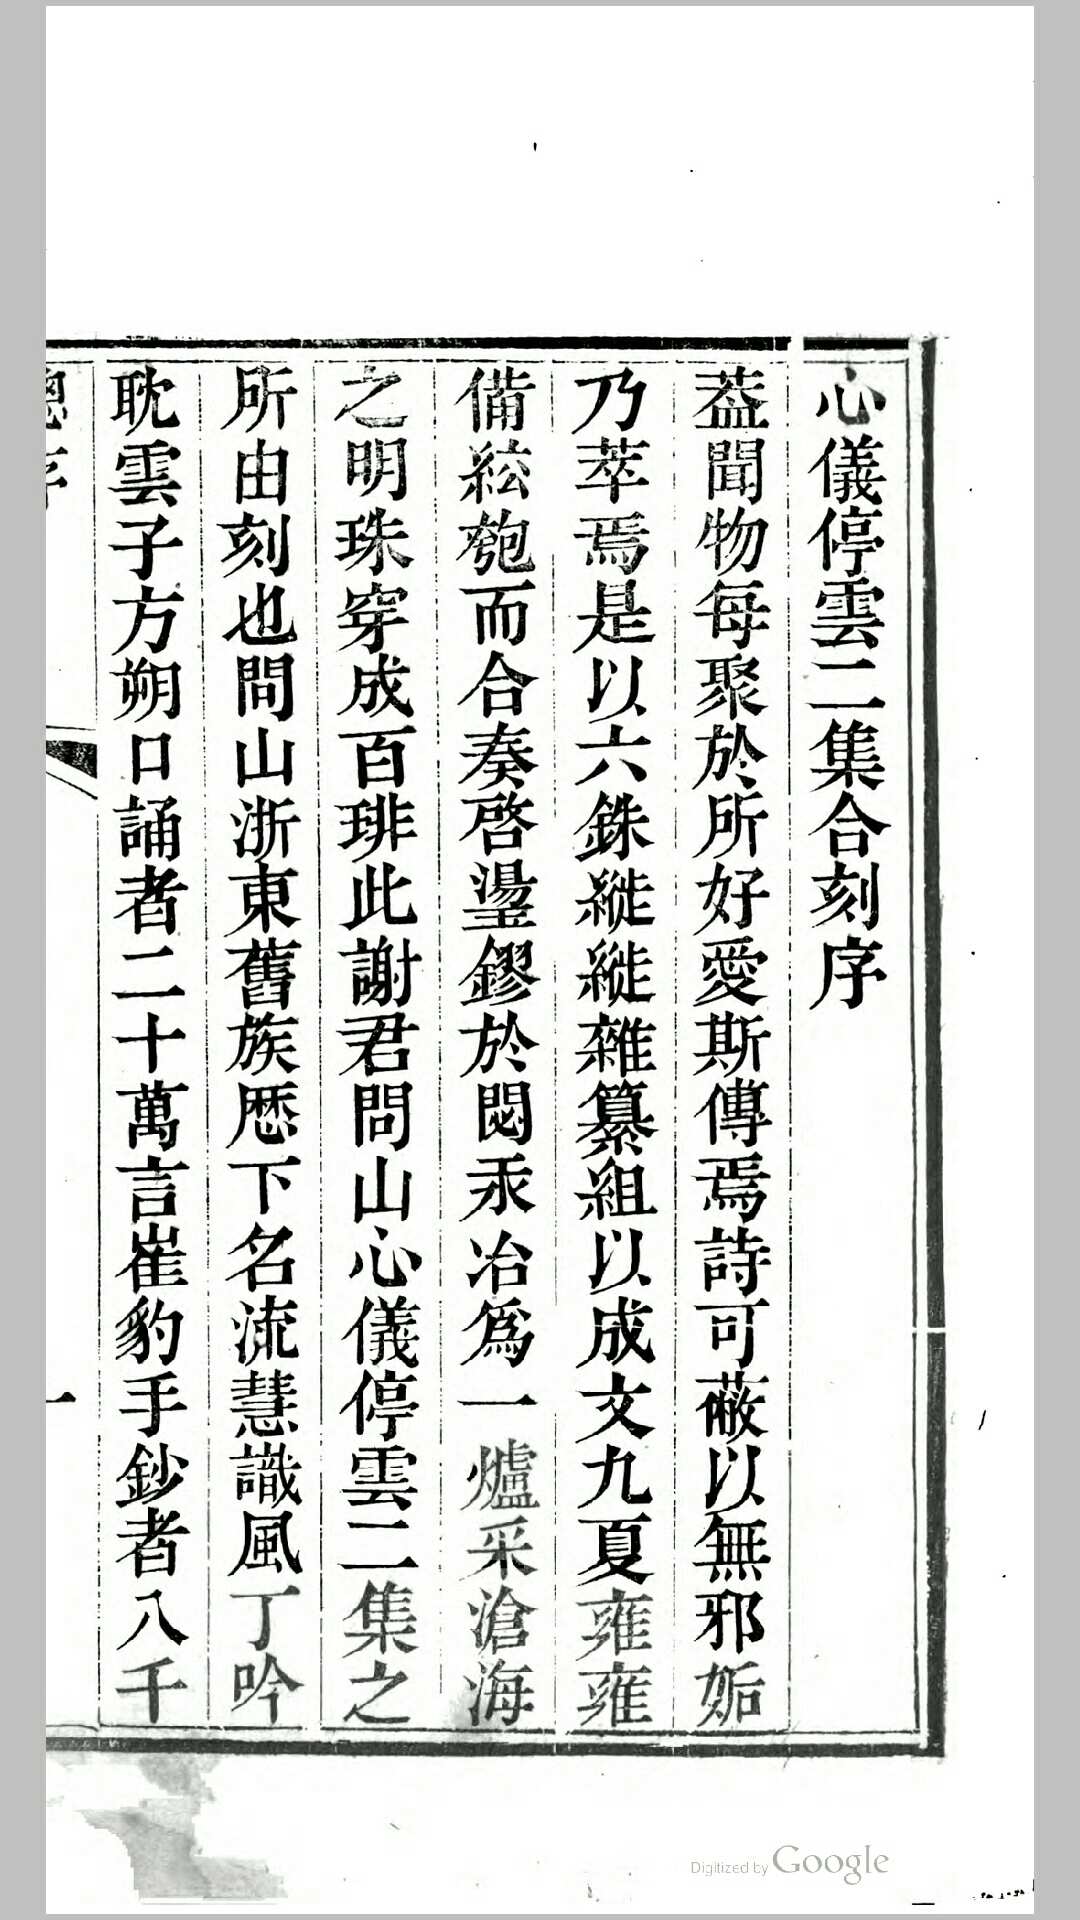 心儀停雲二集合刻序
葢聞物每聚於所好愛斯傳焉詩可蔽以無邪姤
乃萃焉是以六銖縰縰雜纂組以成文九夏雍雍
備絃匏而合奏啓璗鏐於閟汞冶爲一爐采滄海
之明珠穿成百琲此謝君問山心儀停雲二集之
所由刻也問山浙東舊族厯下名流慧識風丁吟
耽雲子方朔口誦者二十萬言崔豹手鈔者八千
總序
一
Digitized by Google